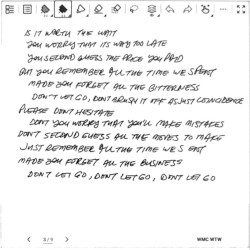 IS IT WORTH THE WAIT
YOU WORRY THAT ITS WAY TOO LATE
YOU SECOND GUESS THE PRICE YOU PAID
BUT YOU REMEMBER ALL THE TIME WE SPENT
MADE YOU FORGET ALL THE BITTERNESS
DON'T LET GO, DON'T BRUSH IT OFF AS JUST COINCIDENCE
PLEASE DON'T HESITATE
DON'T YOU WORRY THAT YOU'LL MAKE MISTAKES
DON'T SECOND GUESS ALL THE MOVES TO MAKE
JUST REMEMBER ALL THE TIME WE S ENT
MADE YOU FORGET ALL THE BUSINESS
DON'T LET GO, DON'T LET GO, DON'T LET GO
3 / 9
WMC WTW